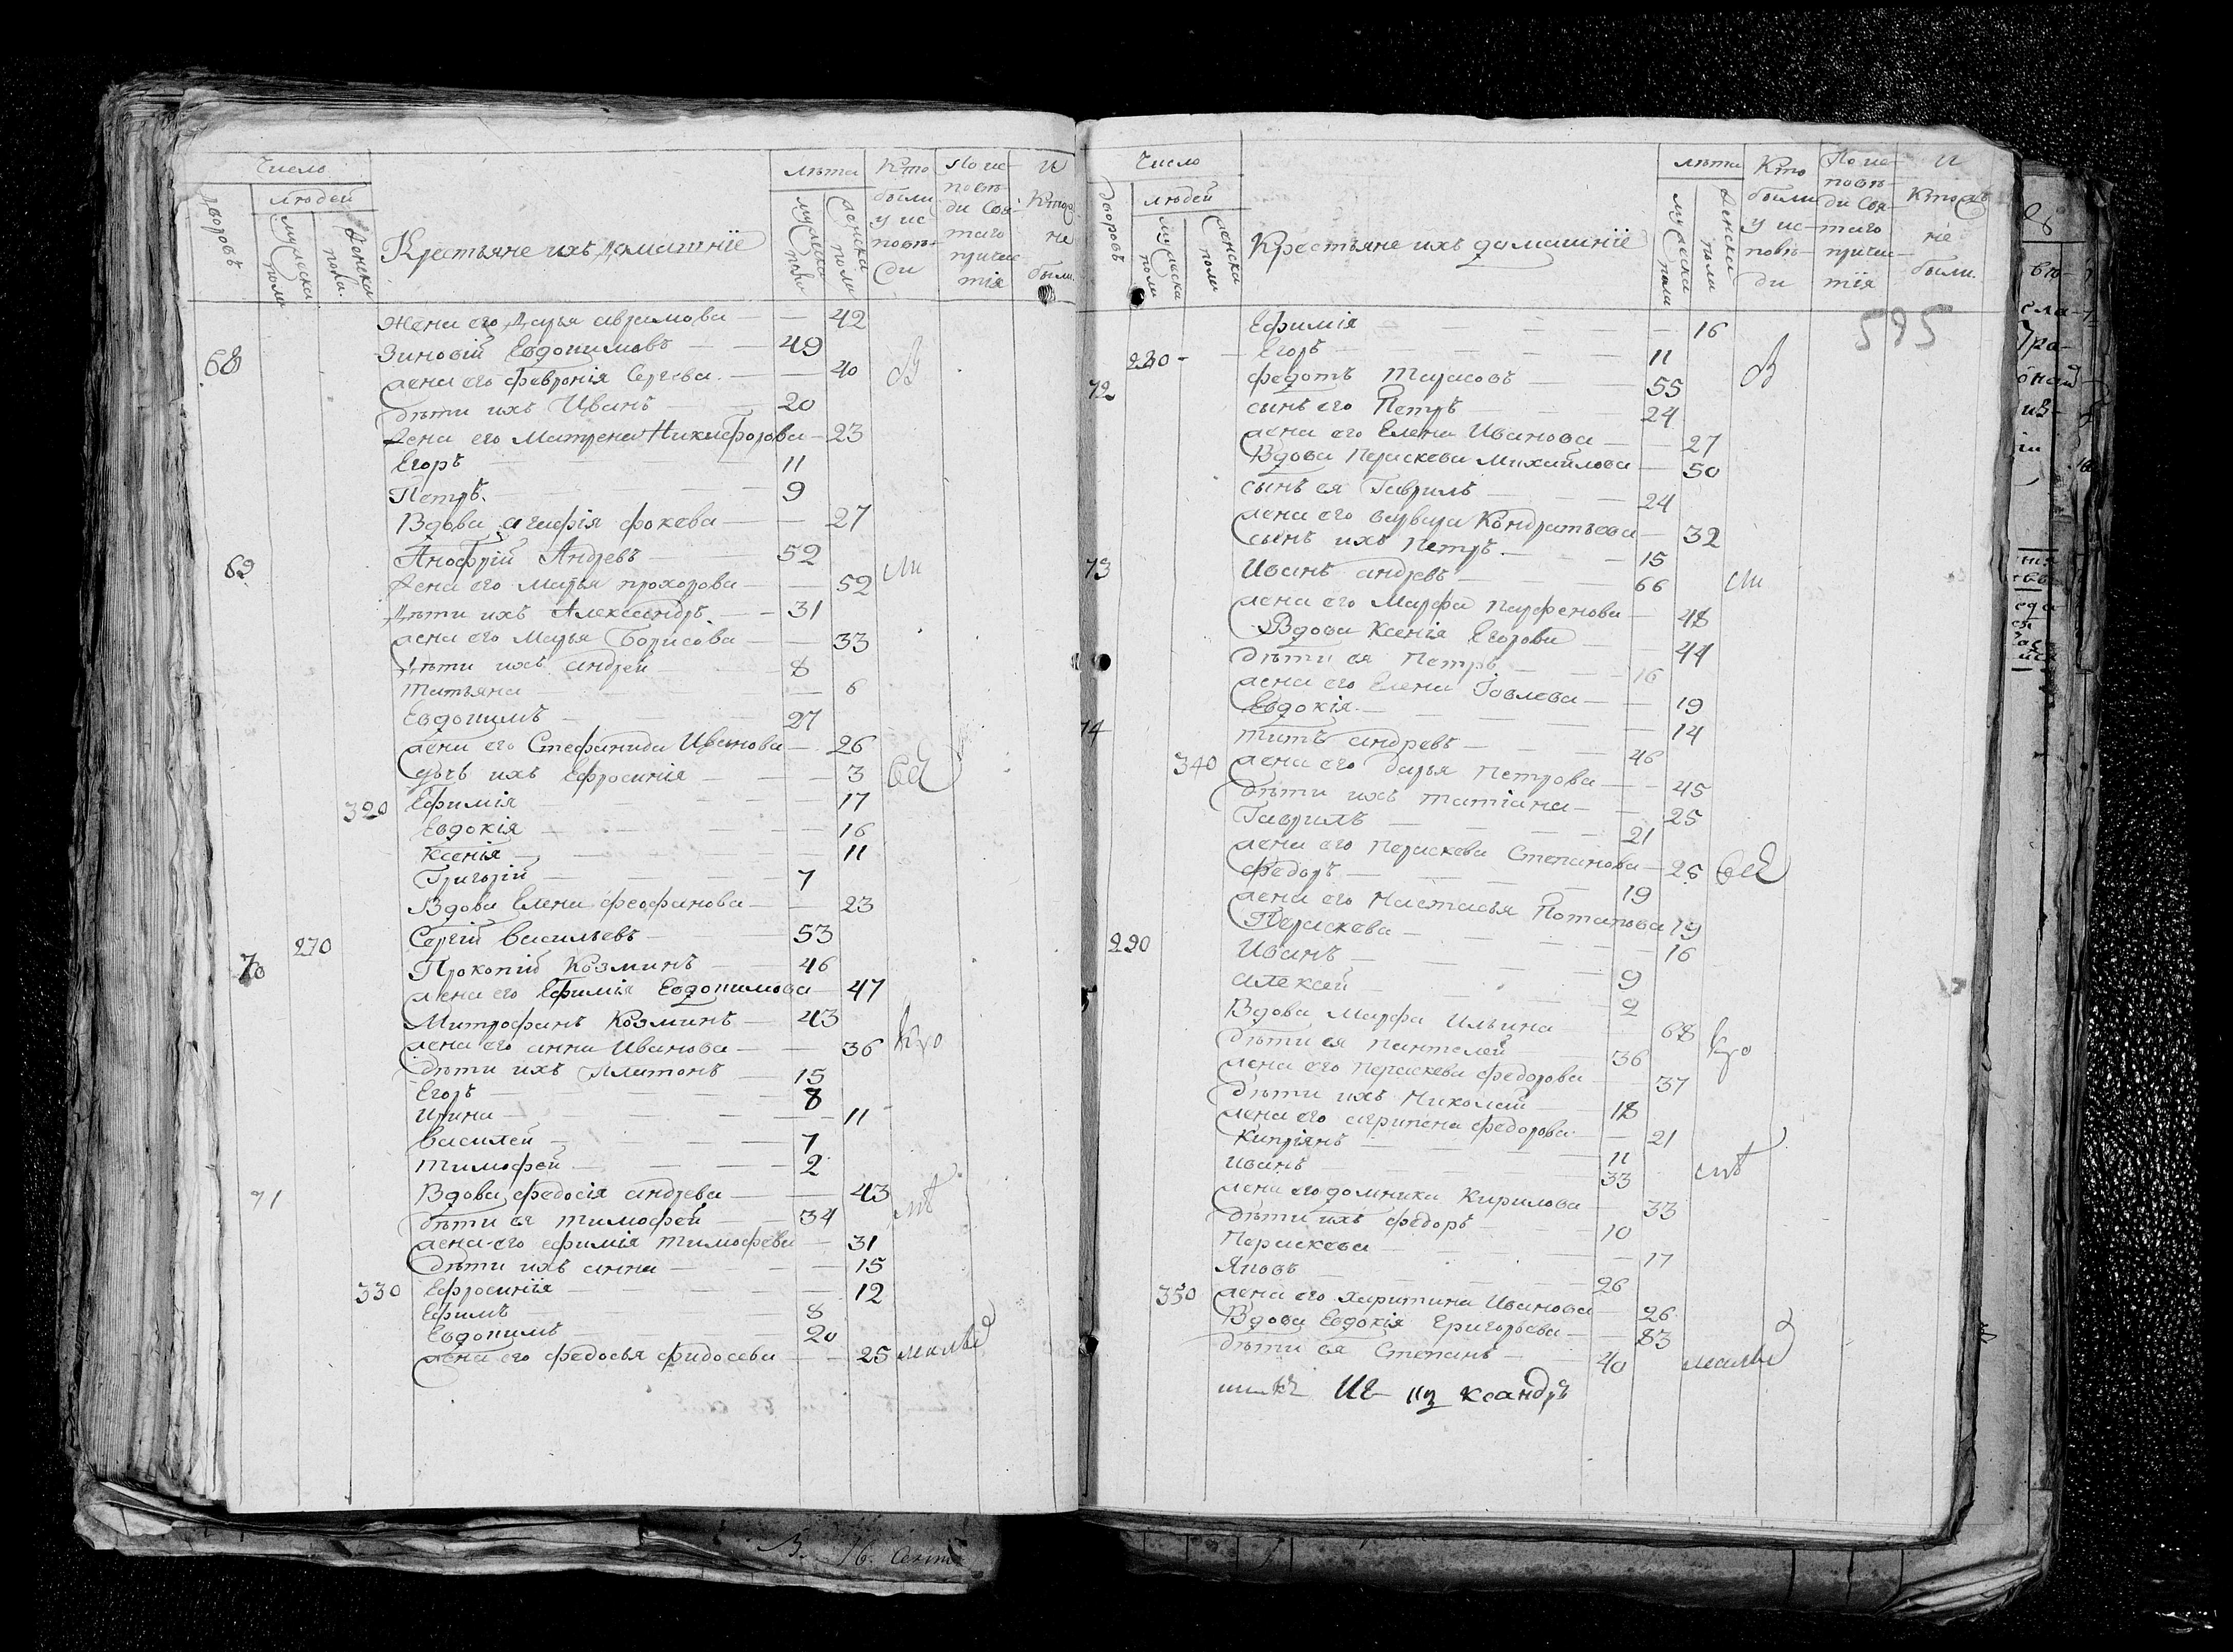 Число
людей
дворовъ
мужеска пола
женска пола
Крестьяне ихъ домашнїе
лѣта
мужеска пола
женска пола
Кто были у исповѣди
По исповѣди Свя-таго причас-тїя
И Кто не были
Жена его Дарья авраамова — — 42
68 Зиновїй Евдокимовъ — — 49
жена его февронїя Сергева — — 40 В
дѣти ихъ Иванъ — 20
жена его Матрена Никифорова — 23
Егоръ — 11
Петръ — 9
Вдова агафїя фокева — — 27
69 Анофрїй Андревъ — 52
жена его Марья прохорова — — 52
дѣти ихъ Александръ — 31
жена его Марья Борисова — — 33
дѣти ихъ андрей — 8
татьяна — — 6
Евдокимъ — 27
жена его Стефанида Иванова — 26
дочь ихъ Ефросинїя — — 3 всѣ
320 Ефимїя — — 17
Евдокїя — — 16
Ксенїя — — 11
Григорїй — 7
Вдова Елена феофанова — — 23
270 Сергїй васильевъ — 53
70 Прокопїй Козминъ — 46
жена его Ефимїя Евдокимова — 47
Митрофанъ Козминъ — 43
жена его анна Иванова — — 36
дѣти ихъ Платонъ — 15
Егоръ — 8
Ирина — — 11
василей — 7
тимофей — 2
71 Вдова федосїя андрева — — 43
дѣти ея тимофей — 34
жена его ефимїя тимофева — 31
дѣти ихъ анна — — 15
330 Ефросинїя — — 12
Ефимъ — 8
Евдокимъ — 20
жена его федосья фидосева — — 25 малые
Число
людей
дворовъ
мужеска пола
женска пола
Крестьяне ихъ домашнїе
лѣта
мужеска пола
женска пола
Кто были у исповѣди
По исповѣди Свя-таго причас-тїя
И Кто не были
595
Ефимїя — — 16
280 - Егоръ — 11 В
72 федотъ Тарасовъ — 55
сынъ его Петръ — 24
жена его Елена Иванова — — 27
Вдова Параскева Михайлова — 50
сынъ ея Гаврилъ — 24
жена его варвара Кондратьева — 32
сынъ ихъ Петръ — 15
73 Иванъ андревъ — 66
жена его Марфа парфенова — 48
Вдова Ксенїя Егорова — — 44
дѣти ея Петръ — 16
жена его Елена Іовлева — — 19
Евдокїя — — 14
74 титъ андревъ — 46
340 жена его дарья Петрова — — 45
дѣти ихъ татїана — — 25
Гаврилъ — 21
жена его Параскева Степанова — 25 всѣ
федоръ — 19
жена его Настасья Потапова 19
Параскева — — 16
290 Иванъ — 9
алексей — 2
Вдова Марфа Ильина — 68
дѣти ея пантелей — 36
жена его параскева федорова — 37
дѣти ихъ Николай — 18
жена его агрипена федорова — 21
Кипрїянъ — 11
иванъ — 33
жена его домника Кирилова — 33
дѣти ихъ федоръ — 10
Параскева — — 17
Яковъ — 26
350 жена его харитина Иванова — 26
Вдова Евдокїя Григорьева — — 83
дѣти ея Степанъ — 40 малые
ксандръ